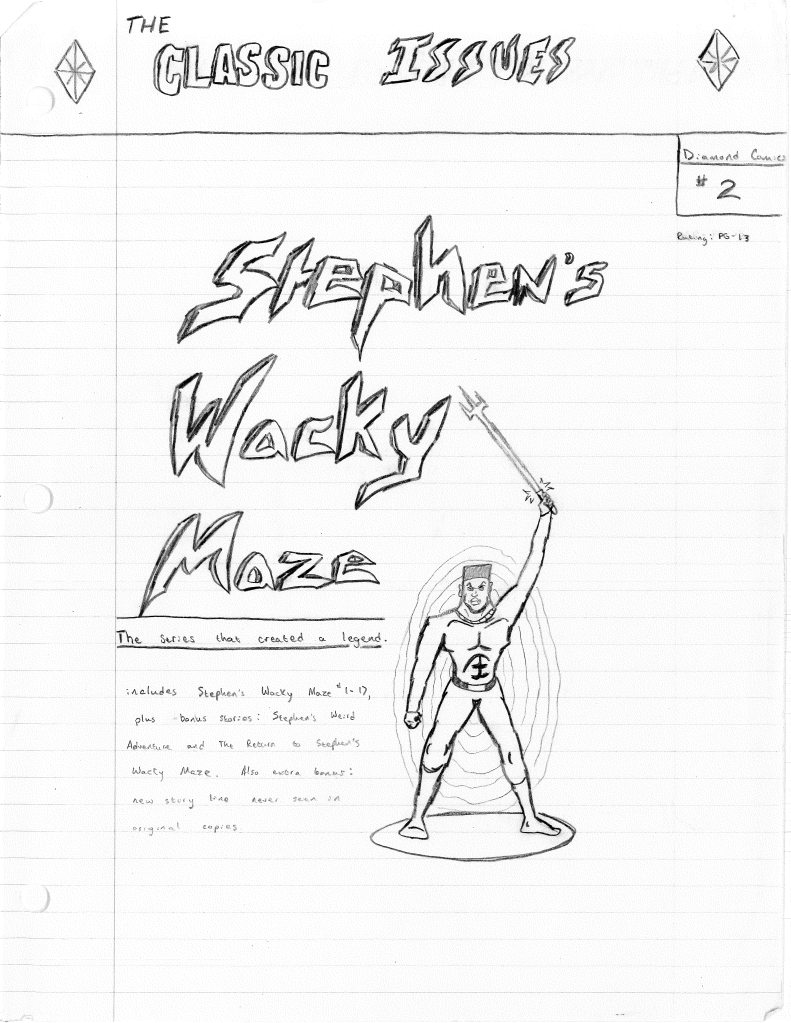 THE
CLASSIC ISSUES
Diamond Comics
# 2
Rating: PG-13
Stephen's
Wacky
Maze
The series that created a legend.
includes Stephen's Wacky Maze #1-17,
plus bonus stories: Stephen's Weird
Adventure and The Return to Stephen's
Wacky Maze. Also extra bonus:
new story line never seen in
original copies